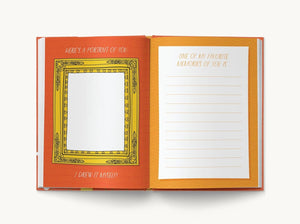 HERE'S A PORTRAIT OF YOU
I DREW IT MYSELF!
ONE OF MY FAVORITE
MEMORIES OF YOU IS